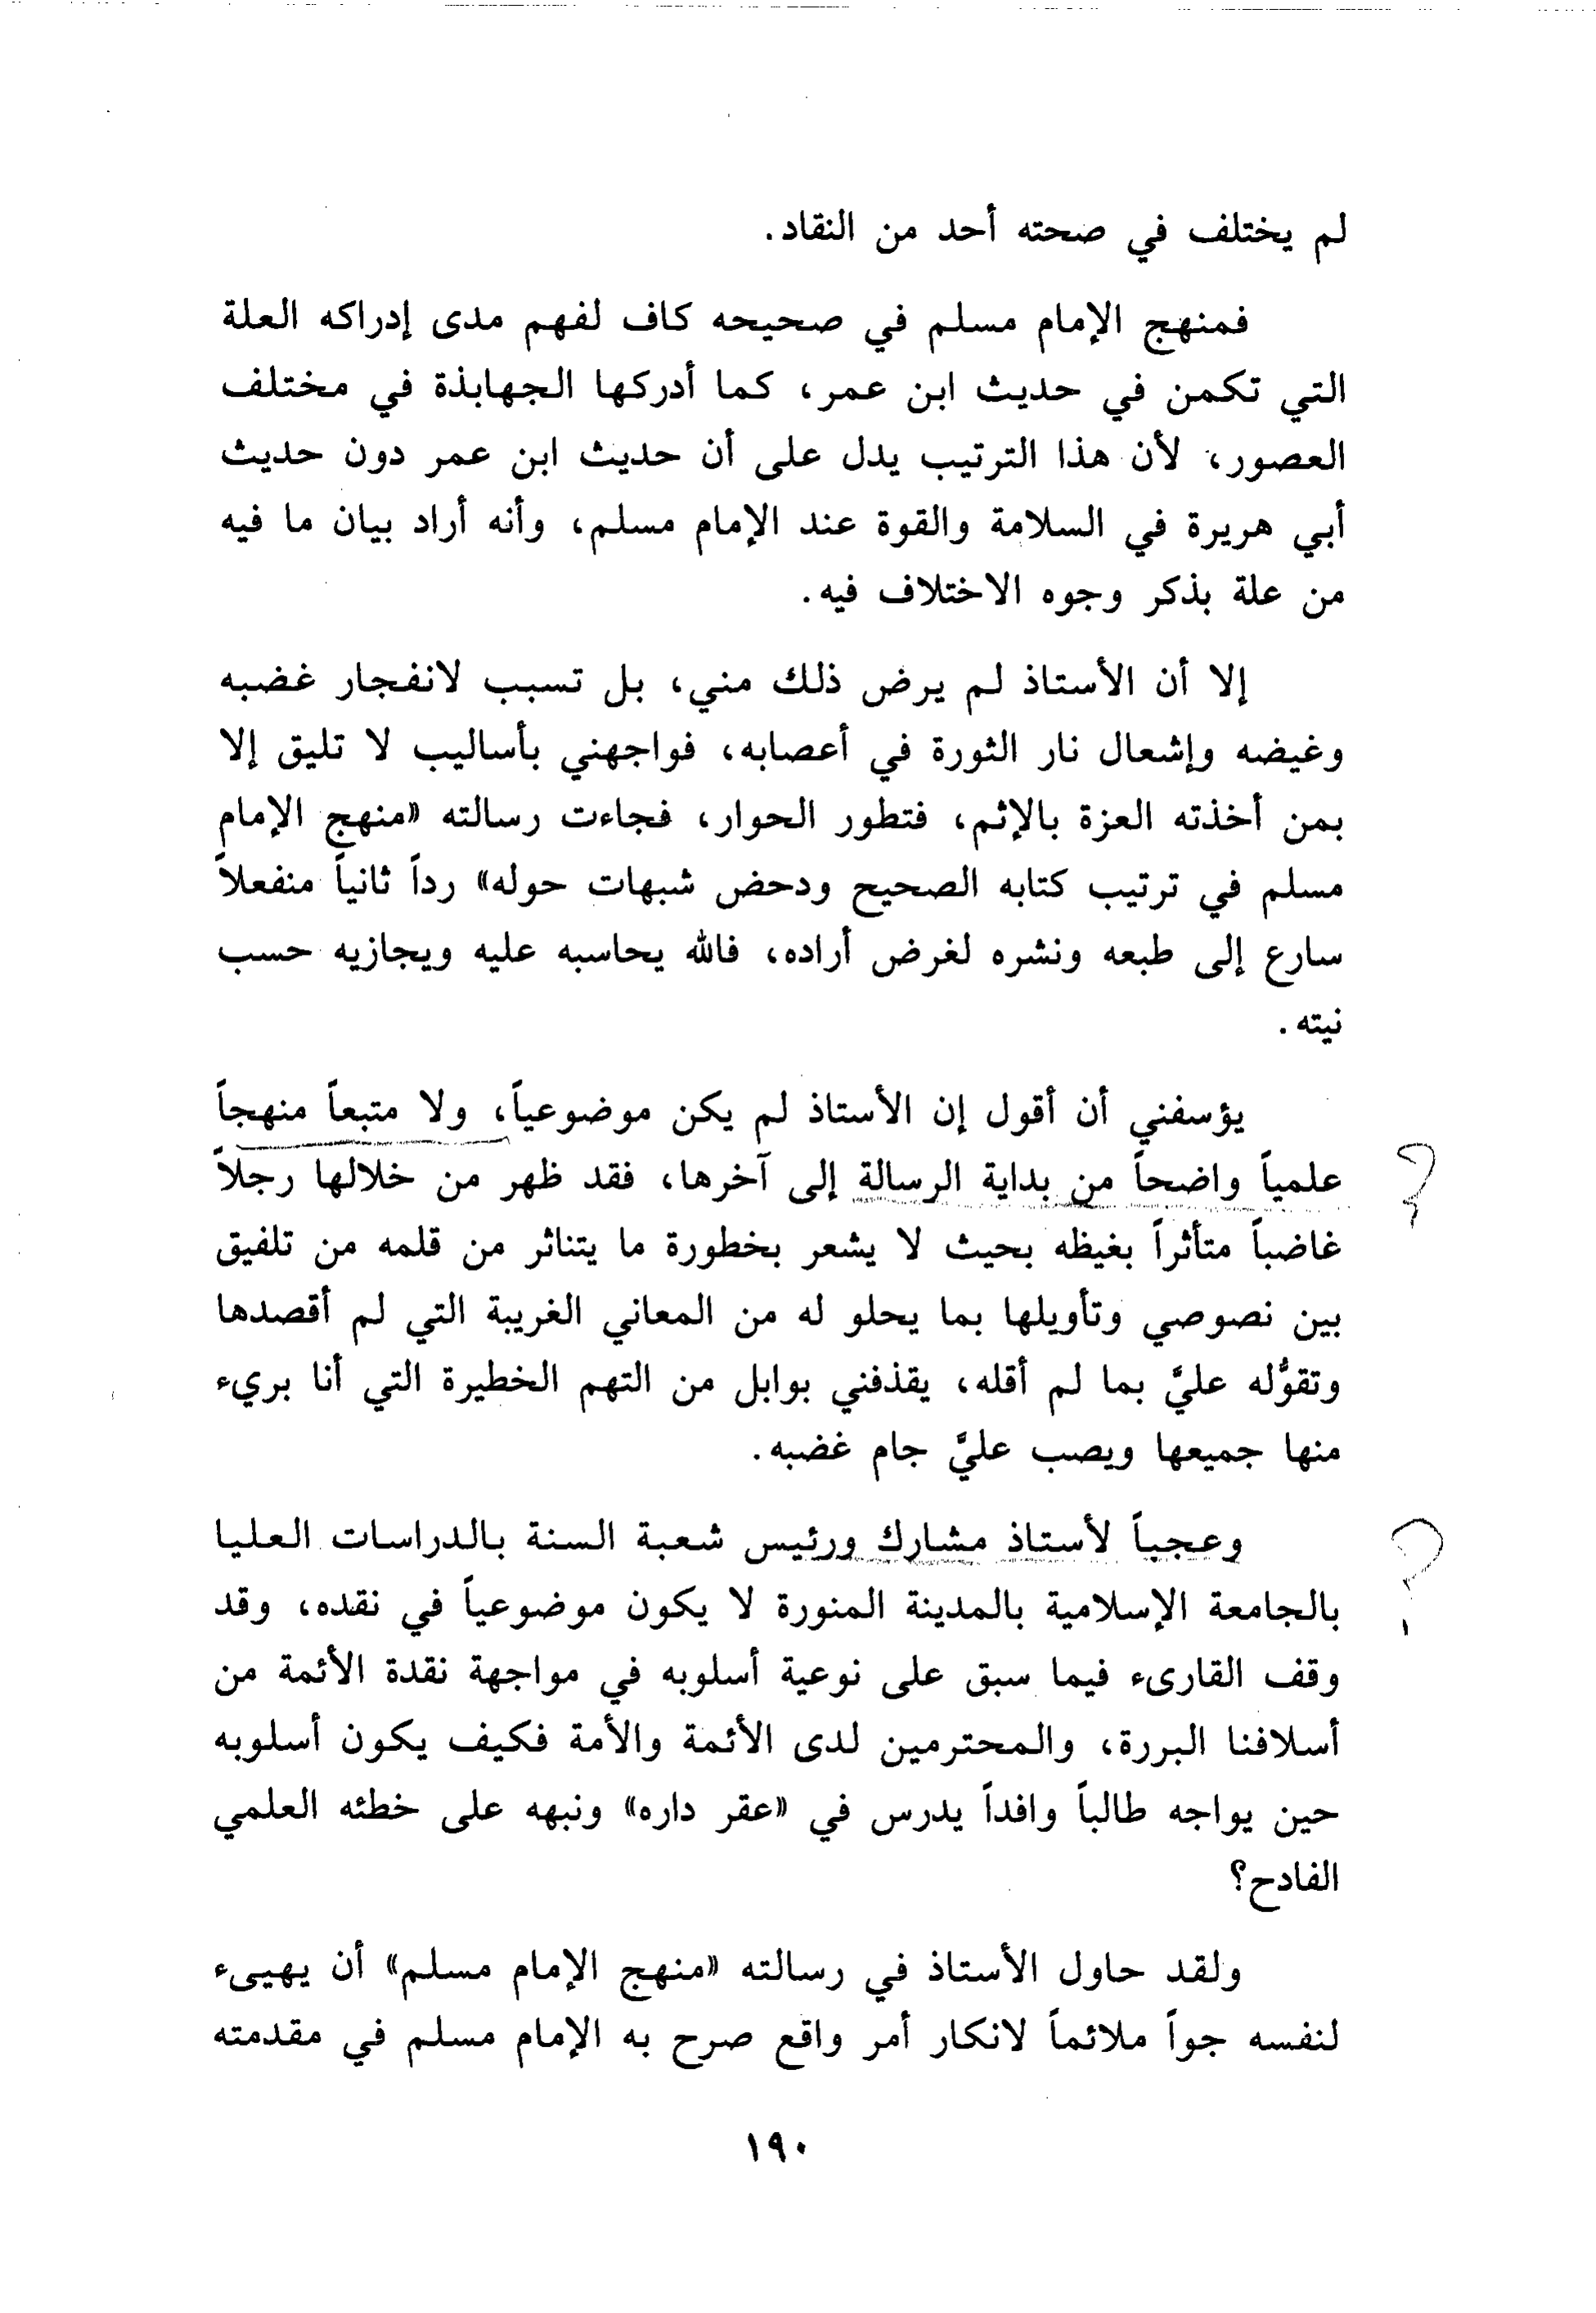 لم يختلف في صحته أحد من النقاد.
فمنهج الإمام مسلم في صحيحه كاف لفهم مدى إدراكه العلة
التي تكمن في حديث ابن عمر، كما أدركها الجهابذة في مختلف
العصور، لأن هذا الترتيب يدل على أن حديث ابن عمر دون حديث
أبي هريرة في السلامة والقوة عند الإمام مسلم، وأنه أراد بيان ما فيه
من علة بذكر وجوه الاختلاف فيه.
إلا أن الأستاذ لم يرض ذلك مني، بل تسبب لانفجار غضبه
وغيضه وإشعال نار الثورة في أعصابه، فواجهني بأساليب لا تليق إلا
بمن أخذته العزة بالإثم، فتطور الحوار، فجاءت رسالته «منهج الإمام
مسلم في ترتيب كتابه الصحيح ودحض شبهات حوله» رداً ثانياً منفعلاً
سارع إلى طبعه ونشره لغرض أراده، فالله يحاسبه عليه ويجازيه حسب
نيته.
يؤسفني أن أقول إن الأستاذ لم يكن موضوعياً، ولا متبعاً منهجاً
علمياً واضحاً من بداية الرسالة إلى آخرها، فقد ظهر من خلالها رجلاً
؟
غاضباً متأثراً بغيظه بحيث لا يشعر بخطورة ما يتناثر من قلمه من تلفيق
بين نصوصي وتأويلها بما يحلو له من المعاني الغريبة التي لم أقصدها
وتقوُّله عليَّ بما لم أقله، يقذفني بوابل من التهم الخطيرة التي أنا بريء
منها جميعها ويصب عليَّ جام غضبه.
وعجباً لأستاذ مشارك ورئيس شعبة السنة بالدراسات العليا
؟
بالجامعة الإسلامية بالمدينة المنورة لا يكون موضوعياً في نقده، وقد
وقف القارىء فيما سبق على نوعية أسلوبه في مواجهة نقدة الأئمة من
أسلافنا البررة، والمحترمين لدى الأئمة والأمة فكيف يكون أسلوبه
حين يواجه طالباً وافداً يدرس في «عقر داره» ونبهه على خطئه العلمي
الفادح؟
ولقد حاول الأستاذ في رسالته «منهج الإمام مسلم» أن يهيىء
لنفسه جواً ملائماً لانكار أمر واقع صرح به الإمام مسلم في مقدمته
١٩٠